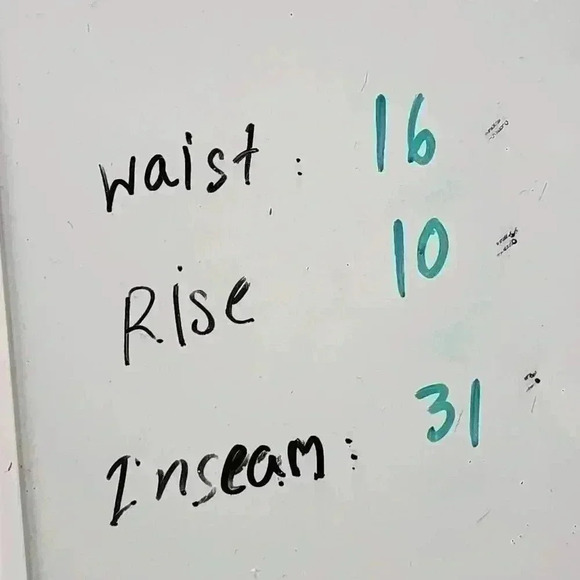 waist: 16
Rise 10
Inseam: 31